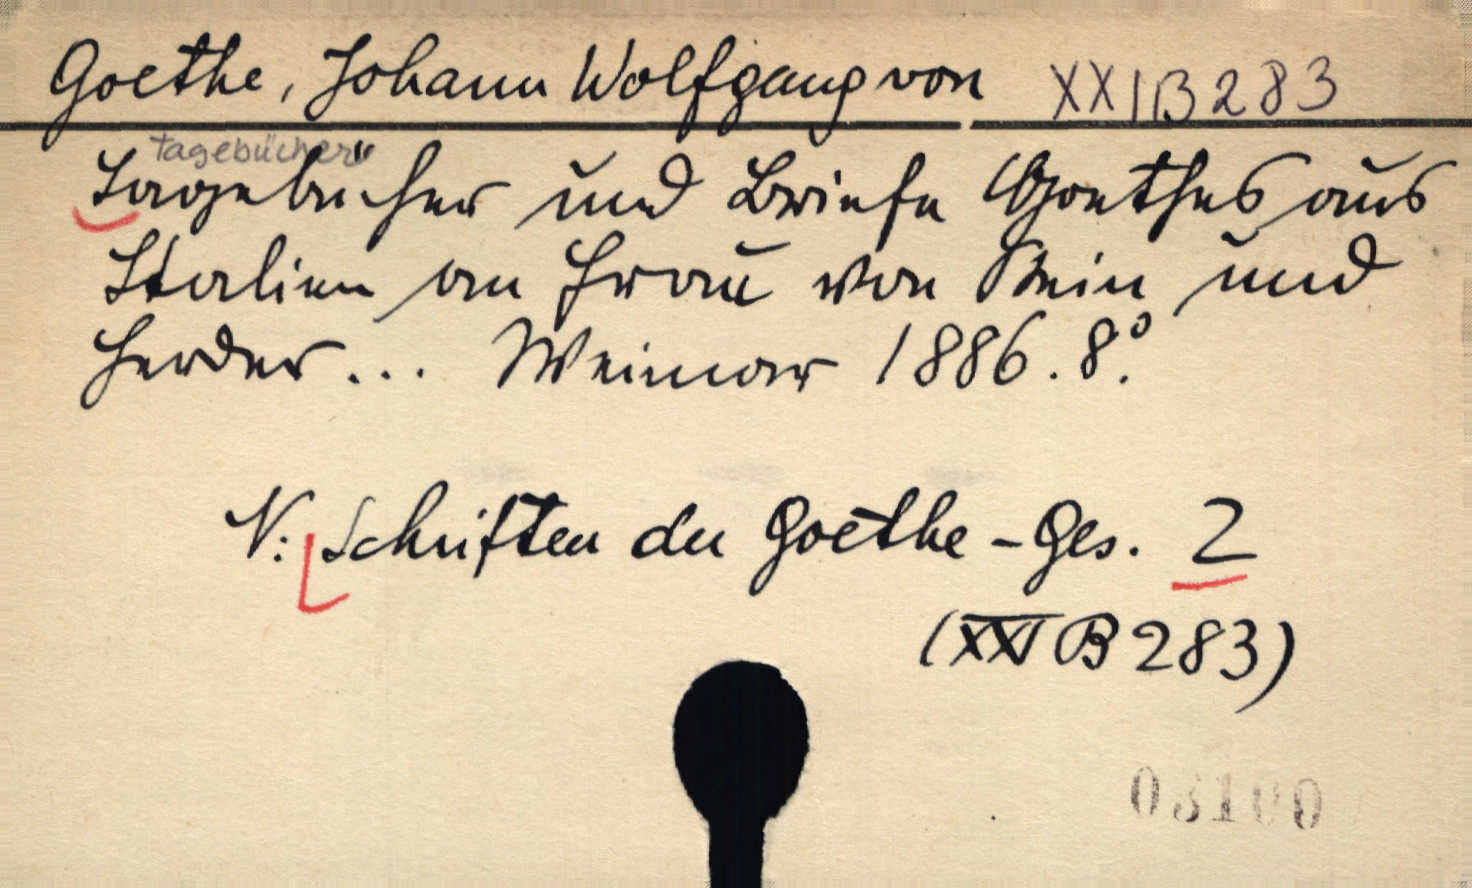 Goethe, Johann Wolfgang von XXI B 283
tagebücher
Tagebücher und Briefe Goethes aus
Italien an Frau von Stein und
Herder... Weimar 1886. 8º.
N: Schriften der Goethe-Ges. 2
(XXI B 283)
03100